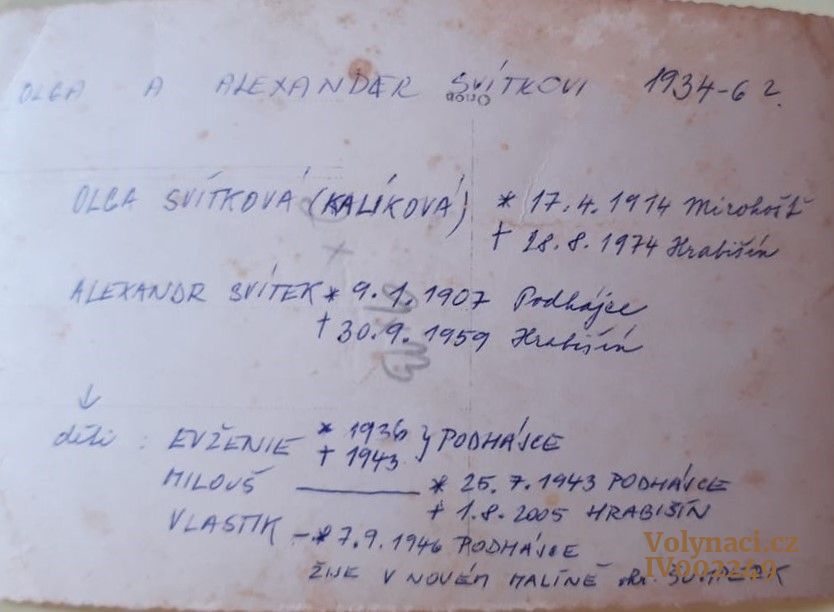 OLGA A ALEXANDER SVÍTKOVI 1934-6 ?
OLGA SVÍTKOVÁ (KALÍKOVÁ) * 17.4.1914 Mirohošť
† 28.8.1974 Hrabišín
ALEXANDR SVÍTEK * 9.1.1907 Podhájce
† 30.9.1959 Hrabišín
děti : EVŽENIE * 1936 } PODHÁJCE
† 1943
MILOUŠ * 25.7.1943 PODHÁJCE
† 1.8.2005 HRABIŠÍN
VLASTIK - * 7.9.1946 PODHÁJCE
ŽIJE V NOVÉM MALÍNĚ okr. ŠUMPERK
Volynaci.cz